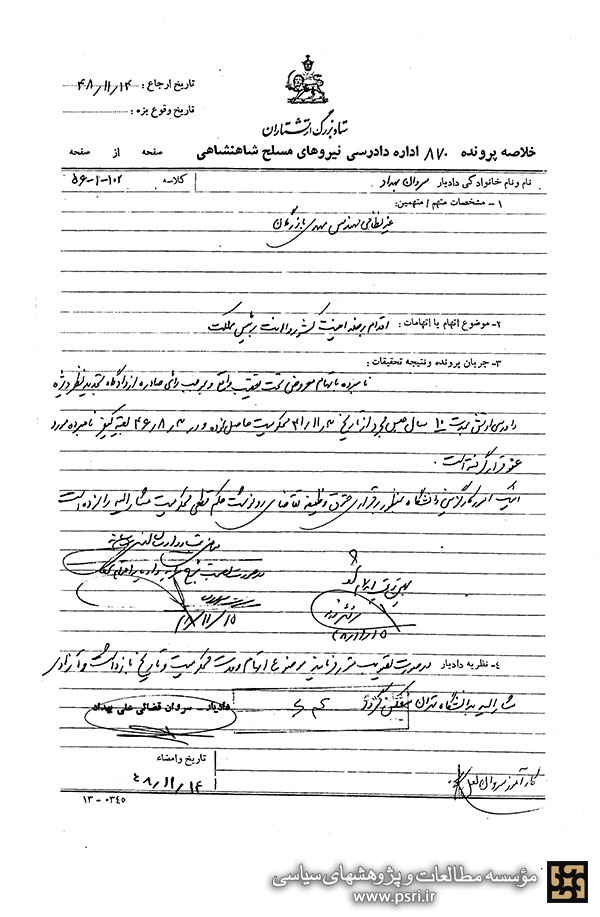 تاریخ ارجاع : ۴۸/۱۱/۱۴
تاریخ وقوع بزه :
ستاد بزرگ ارتشتاران
خلاصه پرونده ۸۷۰ اداره دادرسی نیروهای مسلح شاهنشاهی صفحه از صفحه
نام ونام خانوادگی دادیار سروان بهداد کلاسه
۱ – مشخصات متهم / متهمین:
غیرنظامی مهندس مهدی بازرگان
۲– موضوع اتهام یا اتهامات : اقدام بر ضد امنیت کشور و اهانت به رئیس مملکت
۳– جریان پرونده ونتیجه تحقیقات :
نامبرده باتهام معروض تحت تعقیب واقع و بموجب رای صادره از دادگاه تجدید نظر ویژه
دادرسی ارتش بمدت ۱۰ سال حبس مجرد از تاریخ محکومیت حاصل نموده و در بقیه کیفر نامبرده مورد
عفو قرار گرفته است .
اینک کارگزینی دانشگاه بمنظور برقراری حقوق وظیفه تقاضای رونوشت حکم قطعی محکومیت مشارالیه را نموده است
۴۸/۱۱/۱۵
۴۸/۱۱/۱۵
۴– نظریه دادیار در صورت تصویب مقرر فرمایند موضوع اتهام و مدت محکومیت و تاریخ بازداشت و آزادی
مشارالیه بدانشگاه تهران منعکس گردد
دادیار – سروان قضائی علی بهداد
تاریخ وامضاء
۴۸/۱۱/۱۴
۱۳ – ۰۳۴۵
مؤسسه مطالعات و پژوهشهای سیاسی
www.psri.ir